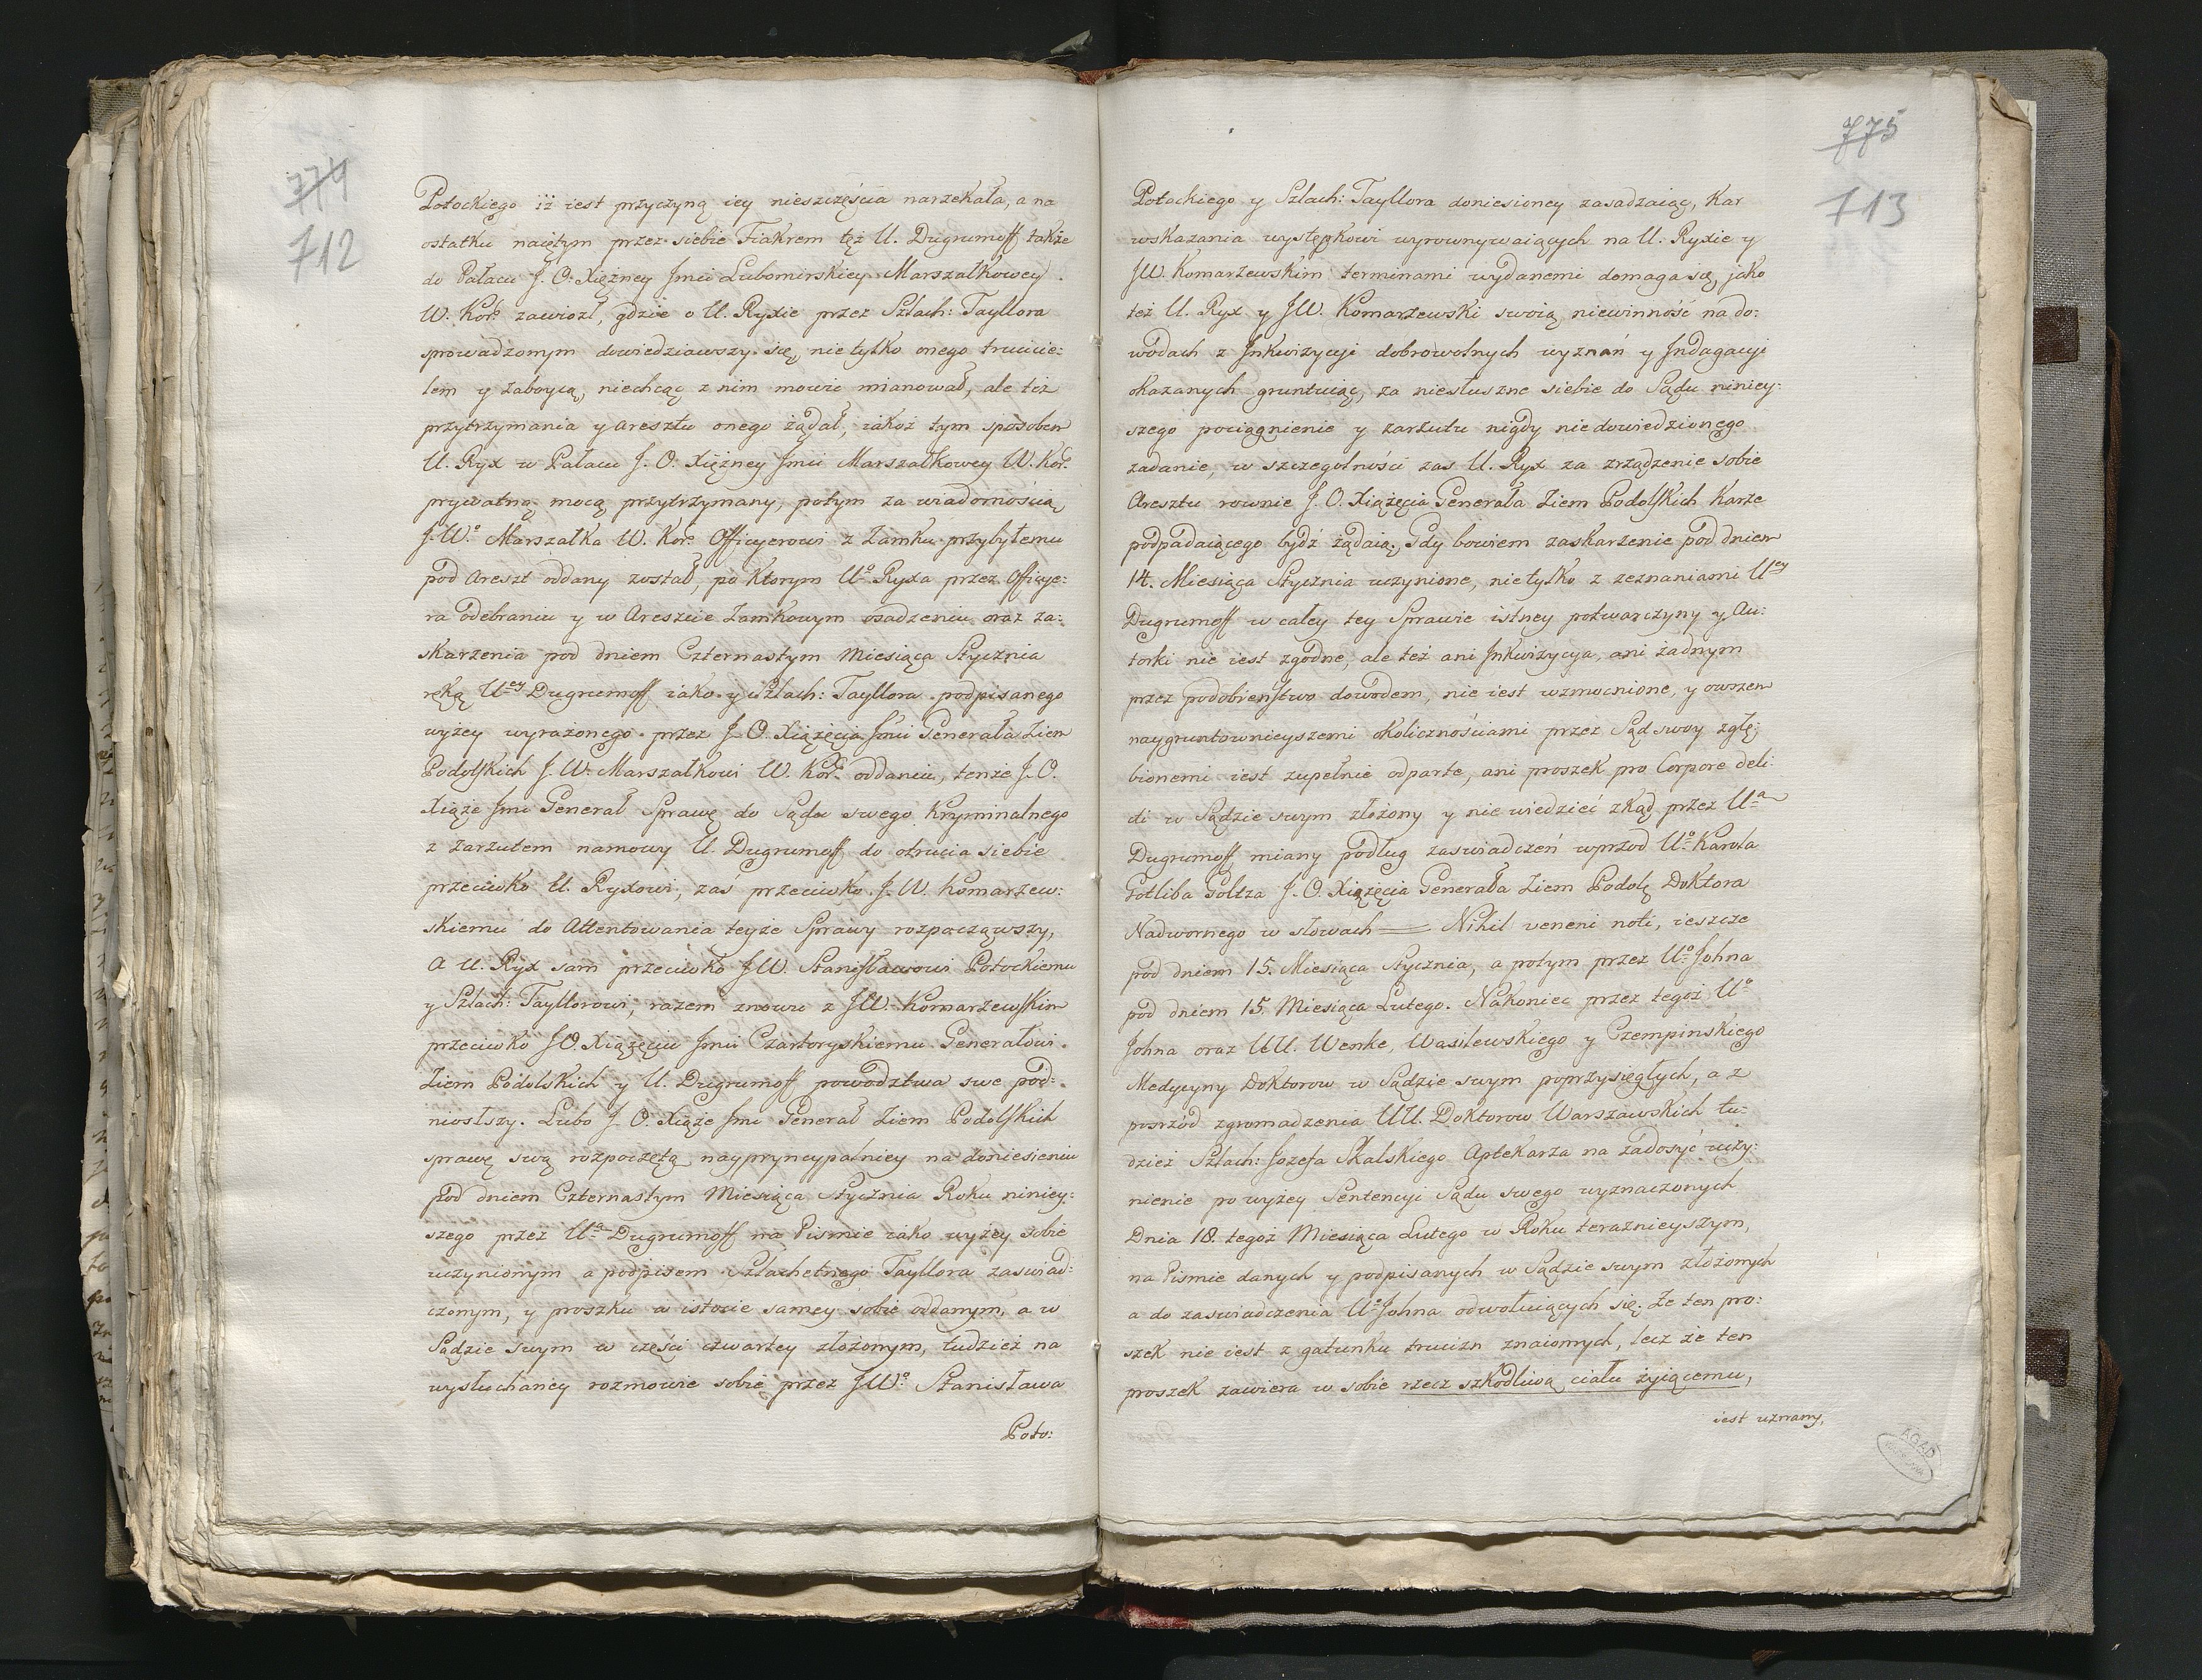 774
712
Potockiego iż iest przyczyną iey nieszczęścia narzekała, a na
ostatku naiętym przez siebie Fiakrem też U. Dugrumoff także
do Pałacu J. O. Xiężney Jmci Lubomirskiey Marszałkowey
W. Kor: zawiozł, gdzie o U. Ryxie przez Szlach: Tayllora
sprowadzonym dowiedziawszy się, nie tylko onego trucicie:
lem y zaboycą, niechcąc z nim mowić mianował, ale też
przytrzymania y aresztu onego żądał, iakoż tym sposobem
U. Ryx w Pałacu J. O. Xiężney Jmci Marszałkowey W. Kor:
prywatną mocą przytrzymany, potym za wiadomością
J. Wº Marszałka W. Kor: Officyerowi z Zamku przybyłemu
pod areszt oddany został, po ktorym Uº Ryxa przez Officye:
ra odebraniu y w Areszcie Zamkowym osadzeniu oraz za:
skarzenia pod dniem Czternastym Miesiąca Stycznia
ręką Uey Dugrumoff iako y Szlach: Tayllora podpisanego
wyżey wyrażonego przez J. O. Xiążęcia Jmci Generała Ziem
Podolskich J. W. Marszałkowi W. Kor: oddaniu, tenże J. O.
Xiąże Jmc Generał Sprawę do Sądu swego Kryminalnego
z zarzutem namowy U. Dugrumoff do otrucia siebie
przeciwko U. Ryxowi, zaś przeciwko J. W. Komarzew:
skiemu do Attentowania teyże Sprawy rozpocząwszy,
A U. Ryx sam przeciwko JW. Stanisławowi Potockiemu
y Szlach: Tayllorowi, razem znowu z JW. Komarzewskim
przeciwko JO. Xiążęciu Jmci Czartoryskiemu Generałowi
Ziem Podolskich y U. Dugrumoff powodztwa swe pod:
niosłszy. Lubo J. O. Xiąże Jmc Generał Ziem Podolskich
sprawę swą rozpoczętą nayprynčypalniey na doniesieniu
pod dniem Czternastym Miesiąca Stycznia Roku niniey:
szego przez Uª Dugrumoff na Pismie iako wyżey sobie
uczynionym a podpisem Szlachetnego Tayllora zaswiad:
czonym, y proszku w istocie samey sobie oddanym, a w
Sądzie swym w części czwartey złożonym, tudzież na
wysłuchaney rozmowie sobie przez JWº Stanisława
Poto:
775
713
Potockiego y Szlach: Tayllora doniesioney zasadzaiąc, Kar
wskazania występkowi wyrownywaiących na U. Ryxie y
JW. Komarzewskim terminami wydanemi domaga się, jako
też U. Ryx y JW. Komarzewski swoią niewinność na do:
wodach z Inkwizycyi dobrowolnych wyznań y Indagacyi
okazanych gruntuiąc, za niesłuszne siebie do Sądu niniey:
szego pociągnienie y zarzutu nigdy niedowiedzionego
zadanie, w szczegolności zas U. Ryx za zrządzenie sobie
Aresztu rownie J. O. Xiążęcia Generała Ziem Podolskich karze
podpadaiącego bydź żądaią, Gdy bowiem zaskarzenie pod dniem
14. Miesiąca Stycznia uczynione, nie tylko z zeznaniami Uey
Dugrumoff w całey tey Sprawie istney potwarczyny y Au:
torki nie iest zgodne, ale też ani Inkwizycya, ani żadnym
przez podobieństwo dowodem, nie iest wzmocnione, y owszem
naygruntownieyszemi okolicznościami przez Sąd swoy zgłę:
bionemi iest zupełnie odparte, ani proszek pro Corpore deli:
cti w Sądzie swym złożony y nie wiedzieć zkąd przez Uª
Dugrumoff miany podług zaswiadczeń wprzod Uº Karola
Gotliba Goltza J. O. Xiążęcia Generała Ziem Podolę Doktora
Nadwornego w słowach Nihil veneni noti, ieszcze
pod dniem 15. Miesiąca Stycznia, a potym przez Uº Johna
pod dniem 15. Miesiąca Lutego. Nakoniec przez tegoż Uº
Johna oraz UU. Wenke, Wasilewskiego y Czempinskiego
Medycyny Doktorow w Sądzie swym poprzysięgłych, a z
posrzod zgromadzenia UU. Doktorow Warszawskich tu:
dzież Szlach: Jozefa Skalskiego Aptekarza na zadosyć uczy:
nienie po wyżey Sentencyi Sądu swego wyznaczonych
Dnia 18. tegoż Miesiąca Lutego w Roku teraznieyszym,
na Pismie danych y podpisanych w Sądzie swym złożonych
a do zaswiadczenia Uº Johna odwołuiących się. Że ten pro:
szek nie iest z gatunku trucizn znaiomych, lecz że ten
proszek zawiera w sobie rzecz szkodliwą ciału żyiącemu,
iest uznany,
AGAD